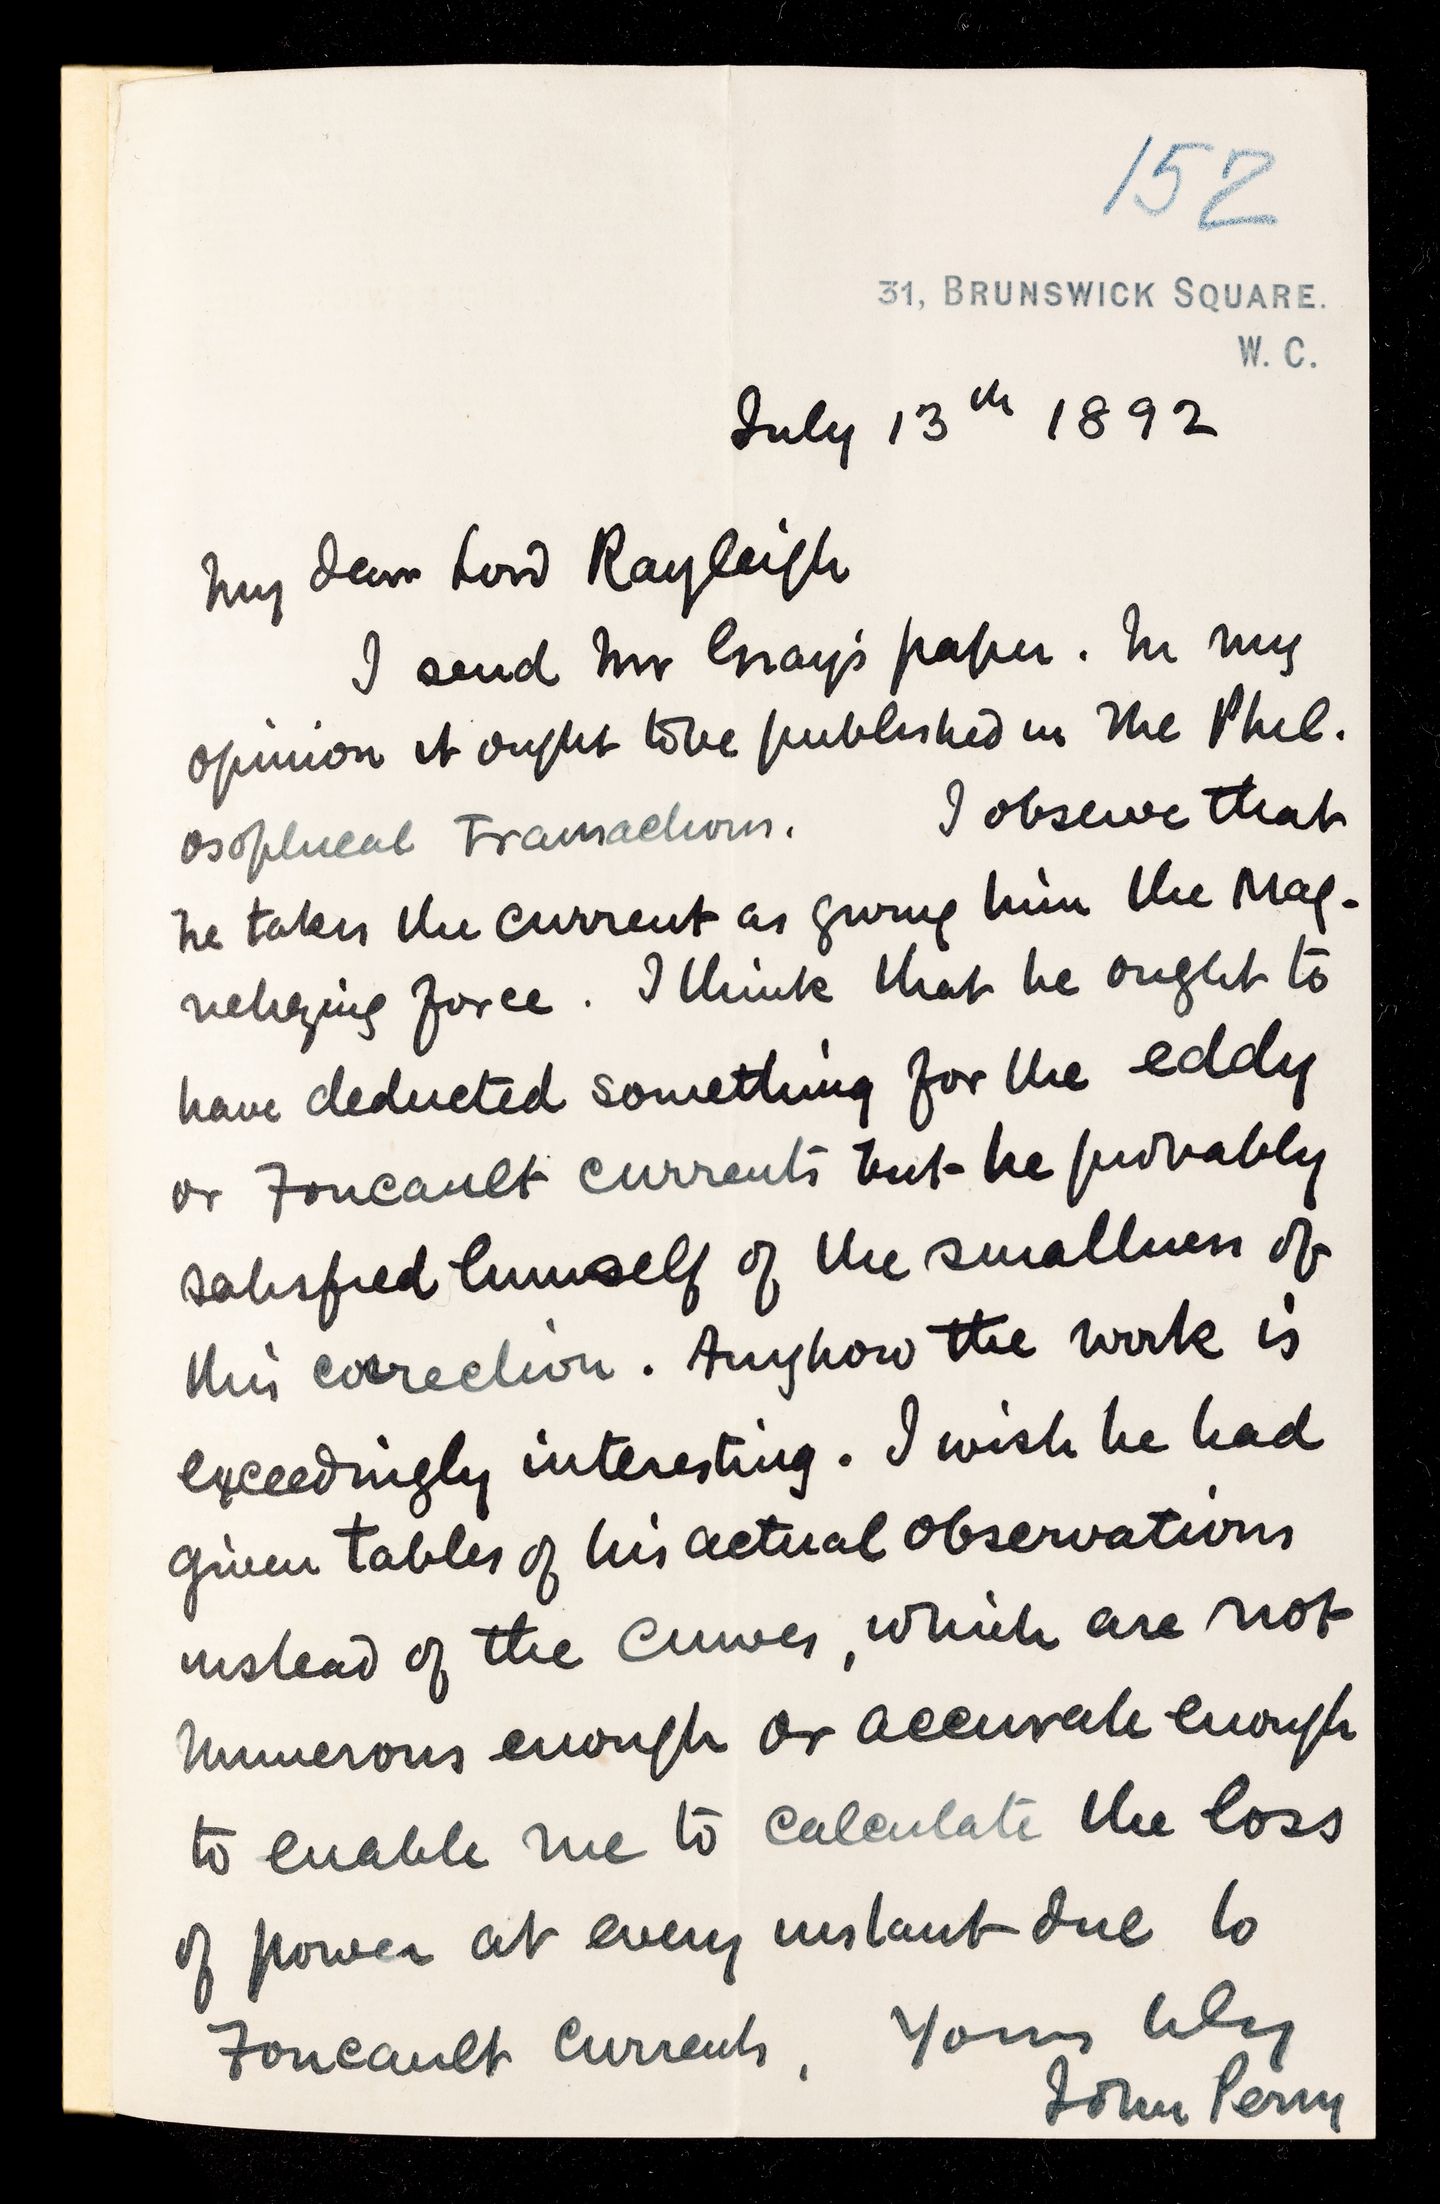 152
31, BRUNSWICK SQUARE.
W. C.
July 13th 1892
My dear Lord Rayleigh
I send Mr Gray's paper. In my
opinion it ought to be published in the Phil.
osophical Transactions. I observe that
he takes the current as giving him the Mag-
netizing force. I think that he ought to
have deducted something for the eddy
or Foucault currents but he probably
satisfied himself of the smallness of
this correction. Anyhow the work is
exceedingly interesting. I wish he had
given tables of his actual observations
instead of the curves, which are not
numerous enough or accurate enough
to enable me to calculate the loss
of power at every instant due to
Foucault currents. Yours
John Perry